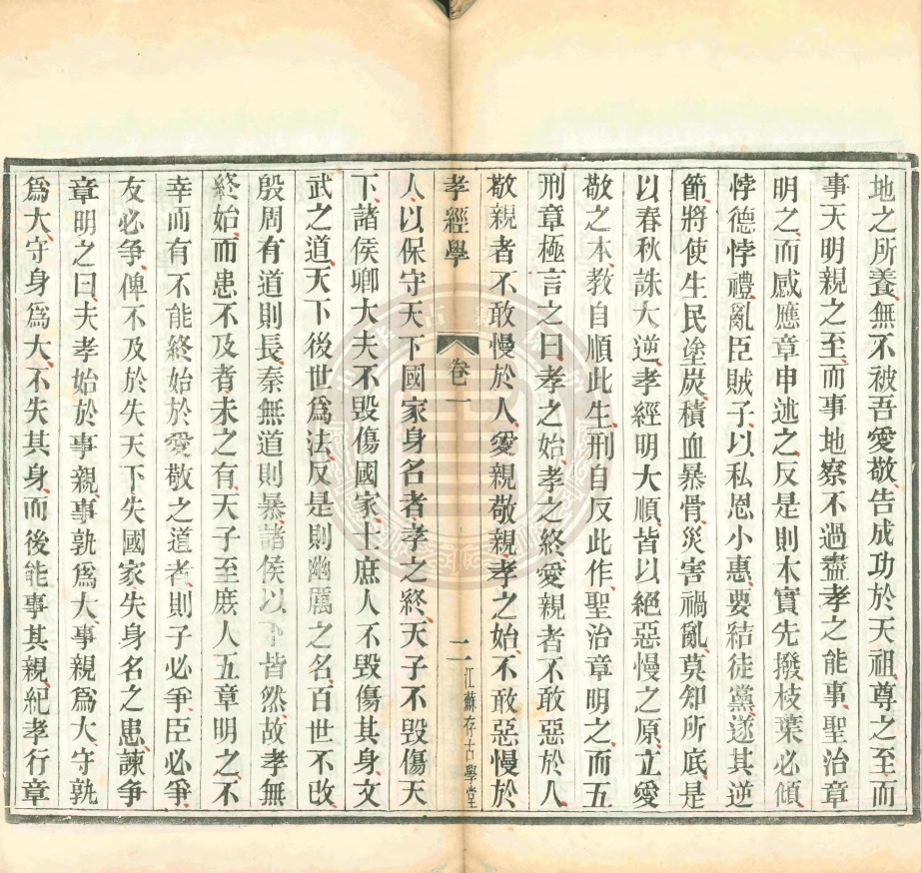 地之所養無不被吾愛敬告成功於天祖尊之至而
事天明親之至而事地察不過盡孝之能事聖治章
明之而感應章申述之反是則本實先撥枝葉必傾
悖德悖禮亂臣賊子以私恩小惠要結徒黨遂其逆
節將使生民塗炭積血暴骨災害禍亂莫知所底是
以春秋誅大逆孝經明大順皆以絕惡慢之原立愛
敬之本教自順此生刑自反此作聖治章明之而五
刑章極言之曰孝之始孝之終愛親者不敢惡於人
敬親者不敢慢於人愛親敬親孝之始不敢惡慢於
孝經學 卷一 二 江蘇存古學堂
人以保守天下國家身名者孝之終天子不毀傷天
下諸侯卿大夫不毀傷國家士庶人不毀傷其身文
武之道天下後世爲法反是則幽厲之名百世不改
殷周有道則長秦無道則暴諸侯以下皆然故孝無
終始而患不及者未之有天子至庶人五章明之不
幸而有不能終始於愛敬之道者則子必爭臣必爭
友必爭俾不及於失天下失國家失身名之患諫爭
章明之曰夫孝始於事親事孰爲大事親爲大守孰
爲大守身爲大不失其身而後能事其親紀孝行章